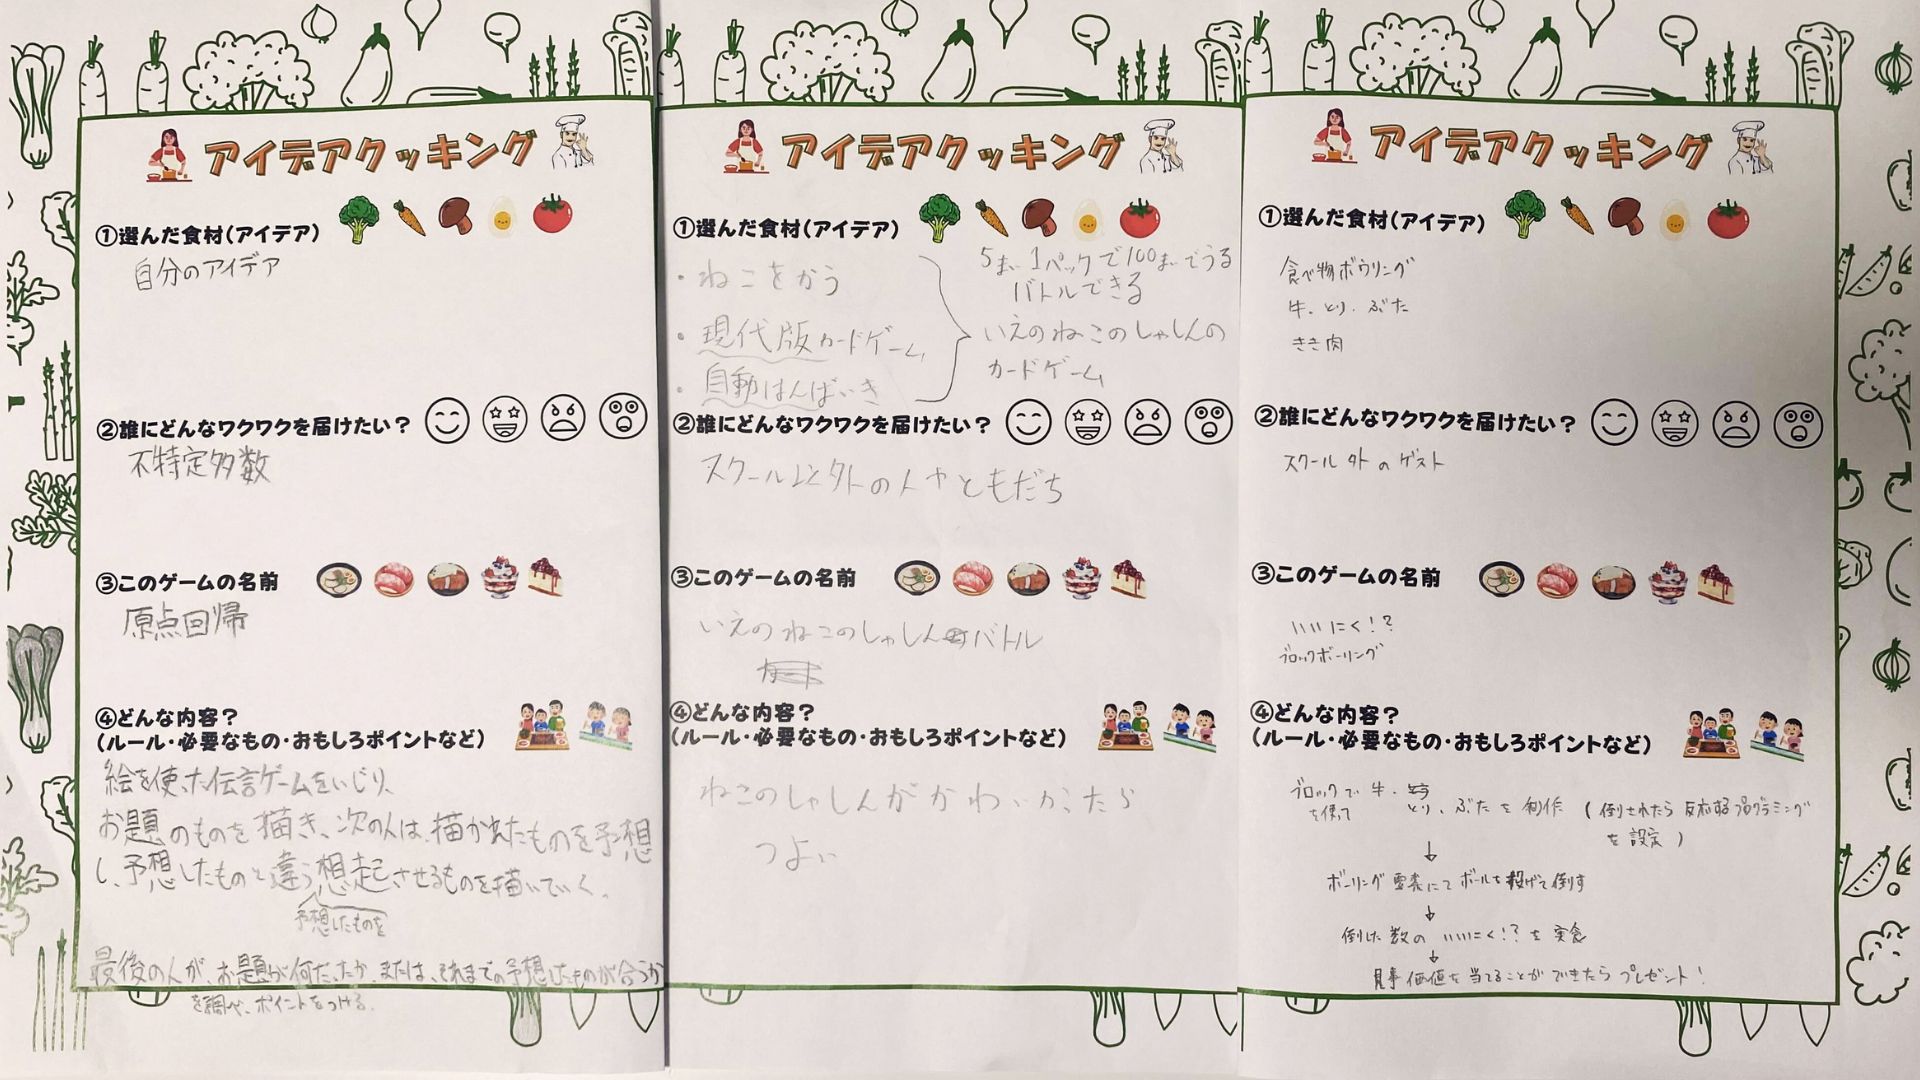 アイデアクッキング
①選んだ食材(アイデア)
自分のアイデア
②誰にどんなワクワクを届けたい？
不特定多数
③このゲームの名前
原点回帰
④どんな内容？
(ルール・必要なもの・おもしろポイントなど)
絵を使った伝言ゲームをいじり、
お題のものを描き、次の人は、描かれたものを予想
し、予想したものと違う想起させるものを描いていく。
予想したものを
最後の人が、お題が何だったか、または、それまでの予想したものが合うか
を調べ、ポイントをつける。
アイデアクッキング
①選んだ食材(アイデア)
・ねこをかう
・現代版カードゲーム
・自動はんばいき
5まい1パックで100まいでうる
バトルできる
いえのねこのしゃしんの
カードゲーム
②誰にどんなワクワクを届けたい？
スクール以外の人やともだち
③このゲームの名前
いえのねこのしゃしんバトル
④どんな内容？
(ルール・必要なもの・おもしろポイントなど)
ねこのしゃしんがかわいかったら
つよい
アイデアクッキング
①選んだ食材(アイデア)
食べ物ボウリング
牛、とり、ぶた
きき肉
②誰にどんなワクワクを届けたい？
スクール外のゲスト
③このゲームの名前
いいにく!?
ブロックボーリング
④どんな内容？
(ルール・必要なもの・おもしろポイントなど)
ブロックで牛、
を使って とり、ぶたを制作 (倒されたら反応するプログラミング
を設定)
↓
ボーリング要素にてボールを投げて倒す
↓
倒した数のいいにく!?を実食
↓
見事価値を当てることができたらプレゼント!